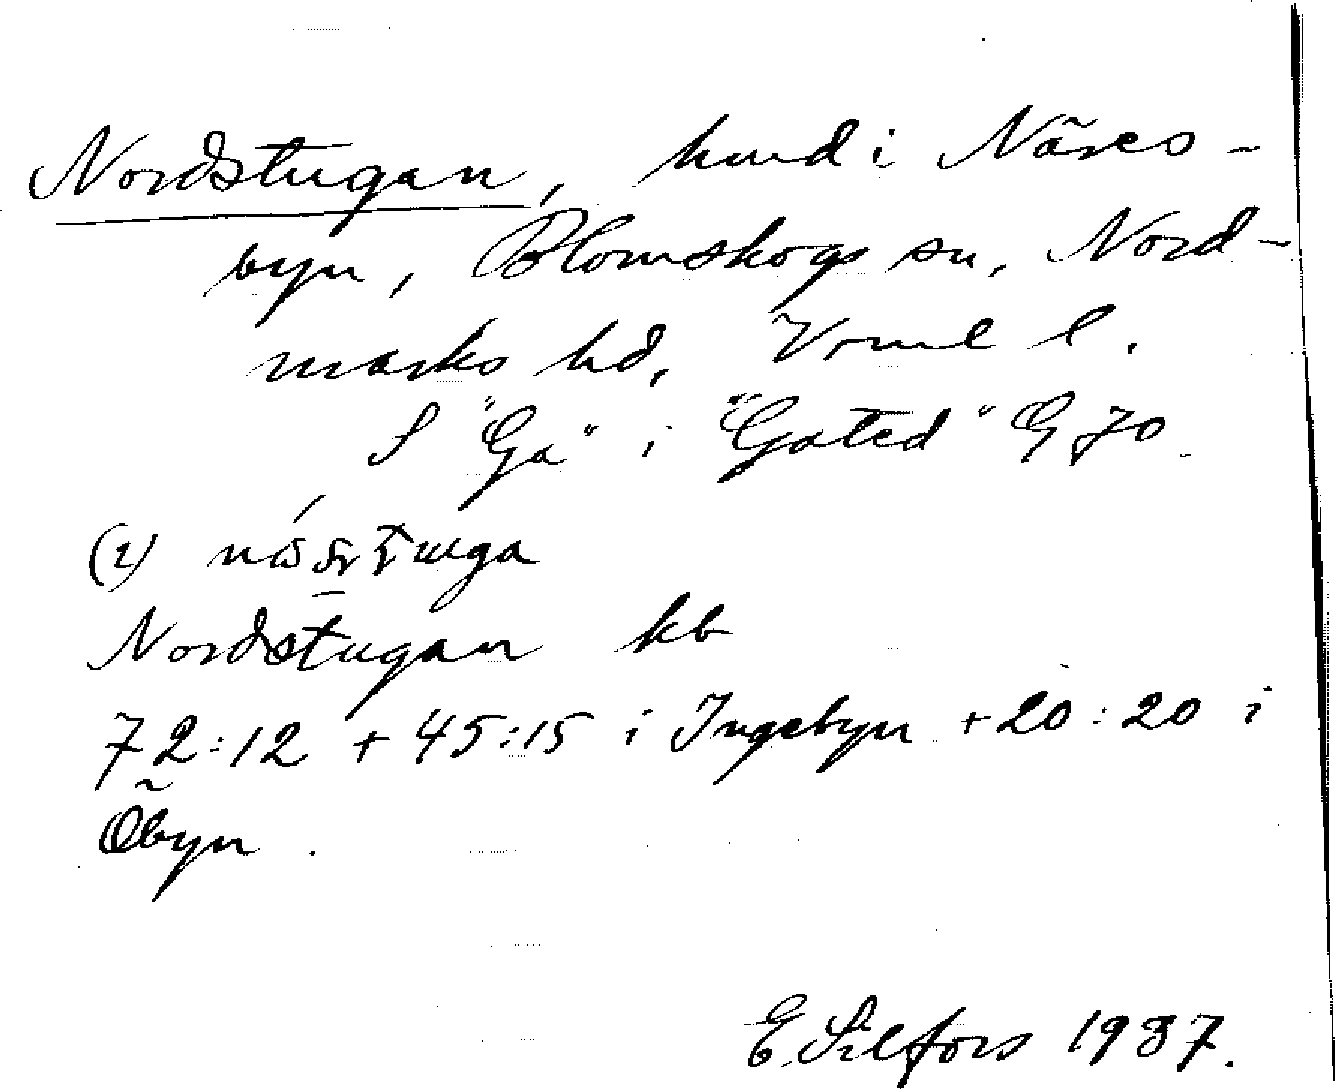 Nordstugan, hmd i Näres-
byn, Blomskogs sn, Nord-
marks hd, Vrml l.
S "Ga" i "Gated" G 70.
(2)
Nordstugan kb
72:12 + 45:15 i Ingebyn + 20:20 i
Öbyn.
E. Silfors 1937.